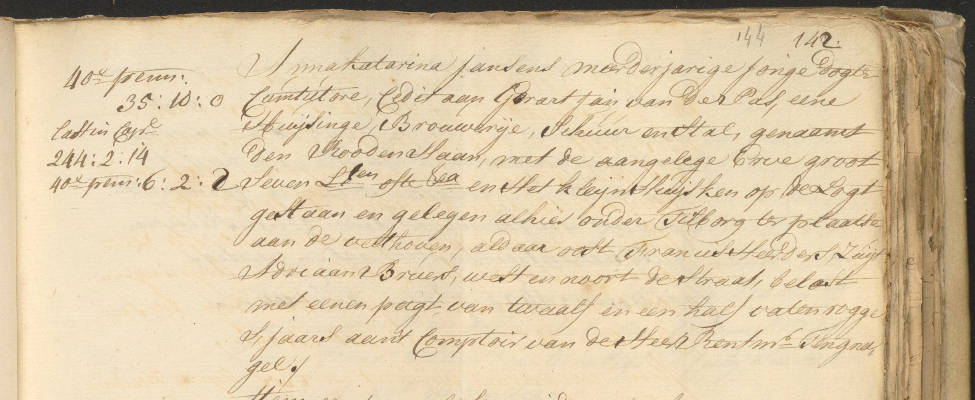 144 142.
40e penn:
35:10:0
Last in Capl
244:2:14
40e penn: 6:2:2
Annakatarina Jansens meerderjarige jonge dogtr
Cumtutore, Cedit aan Gerart Jan van der Pas, eene
Huijsinge, Brouwerije, Schuur en stal, genaamt
den Rooden Haan, met de aangelege Erve groot
Seven Lten ofte Cca en Het kleijn Huijsken op de Logt
gestaan en gelegen alhier onder Tilborg ter plaatse
aan de velthoven, aldaar oost Francis Heerders, Zuijt
Adriaan Bruers, west en noort de straat, belast
met eenen pagt van twaalf en een half vaten rogge
S,jaars aant Comptoir van de Heer Rentmr Tengna,
gel:/